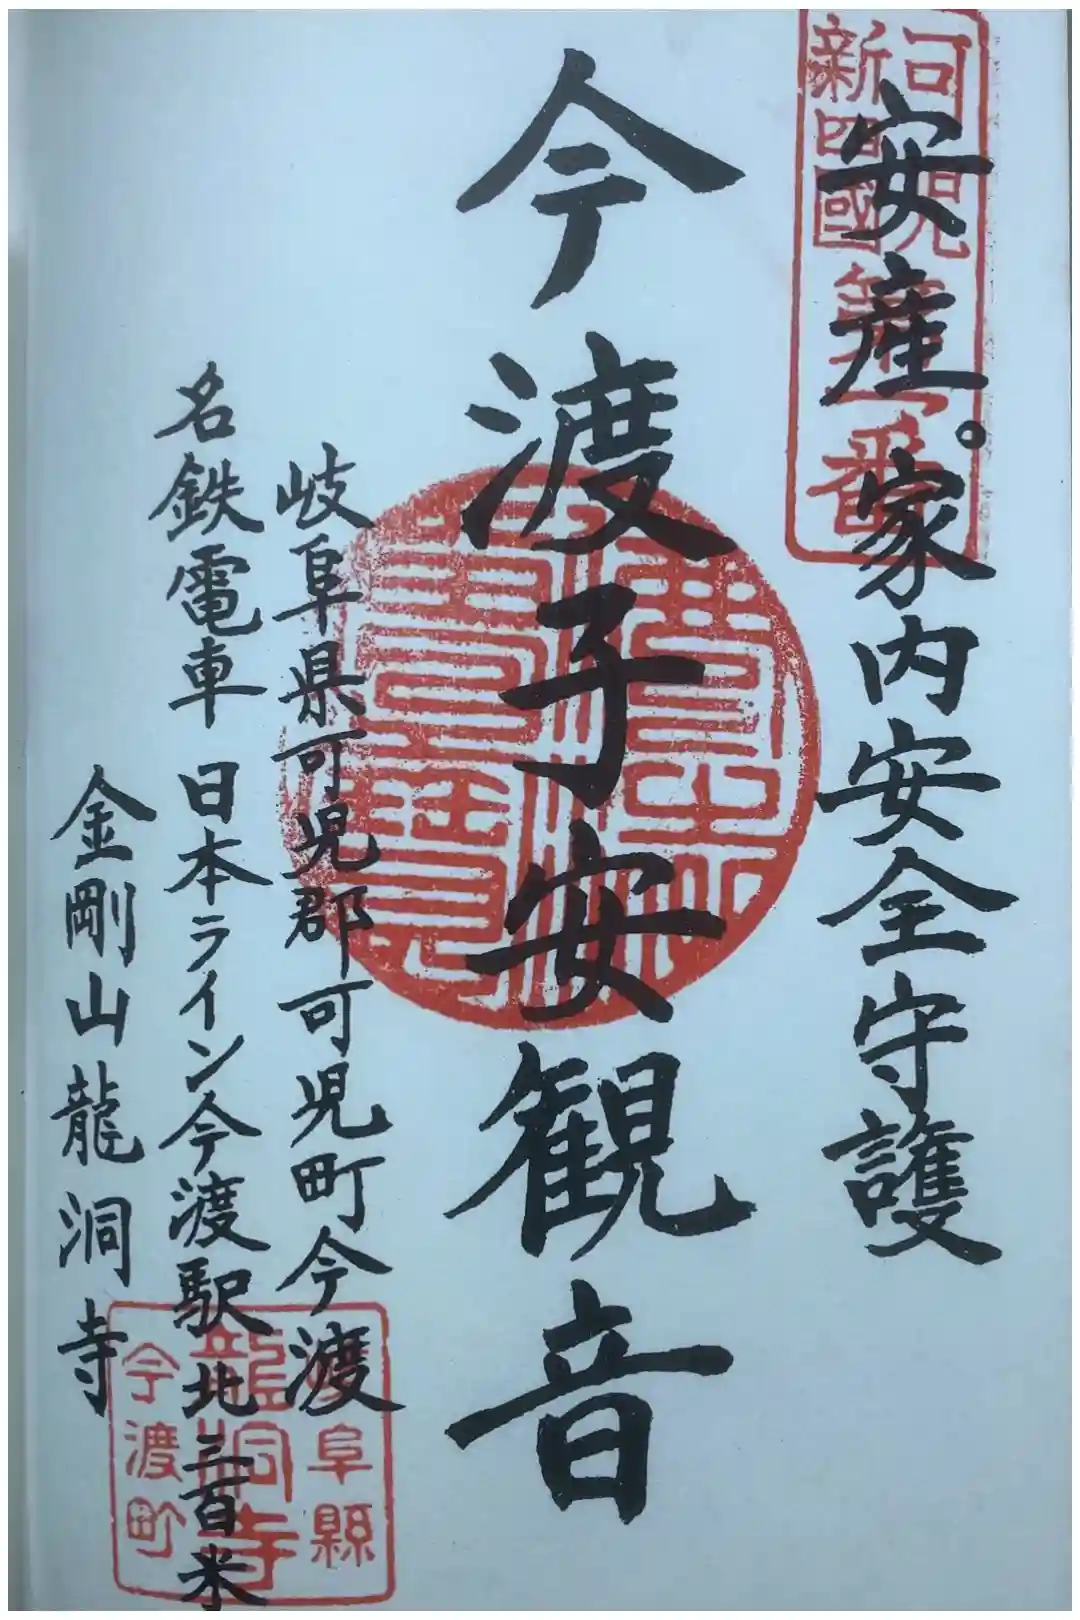 可児
新四國
第一番
安産。家内安全守護
今渡子安観音
岐阜県可児郡可児町今渡
名鉄電車 日本ライン今渡駅北三百米
金剛山龍洞寺
岐阜縣
龍洞寺
今渡町